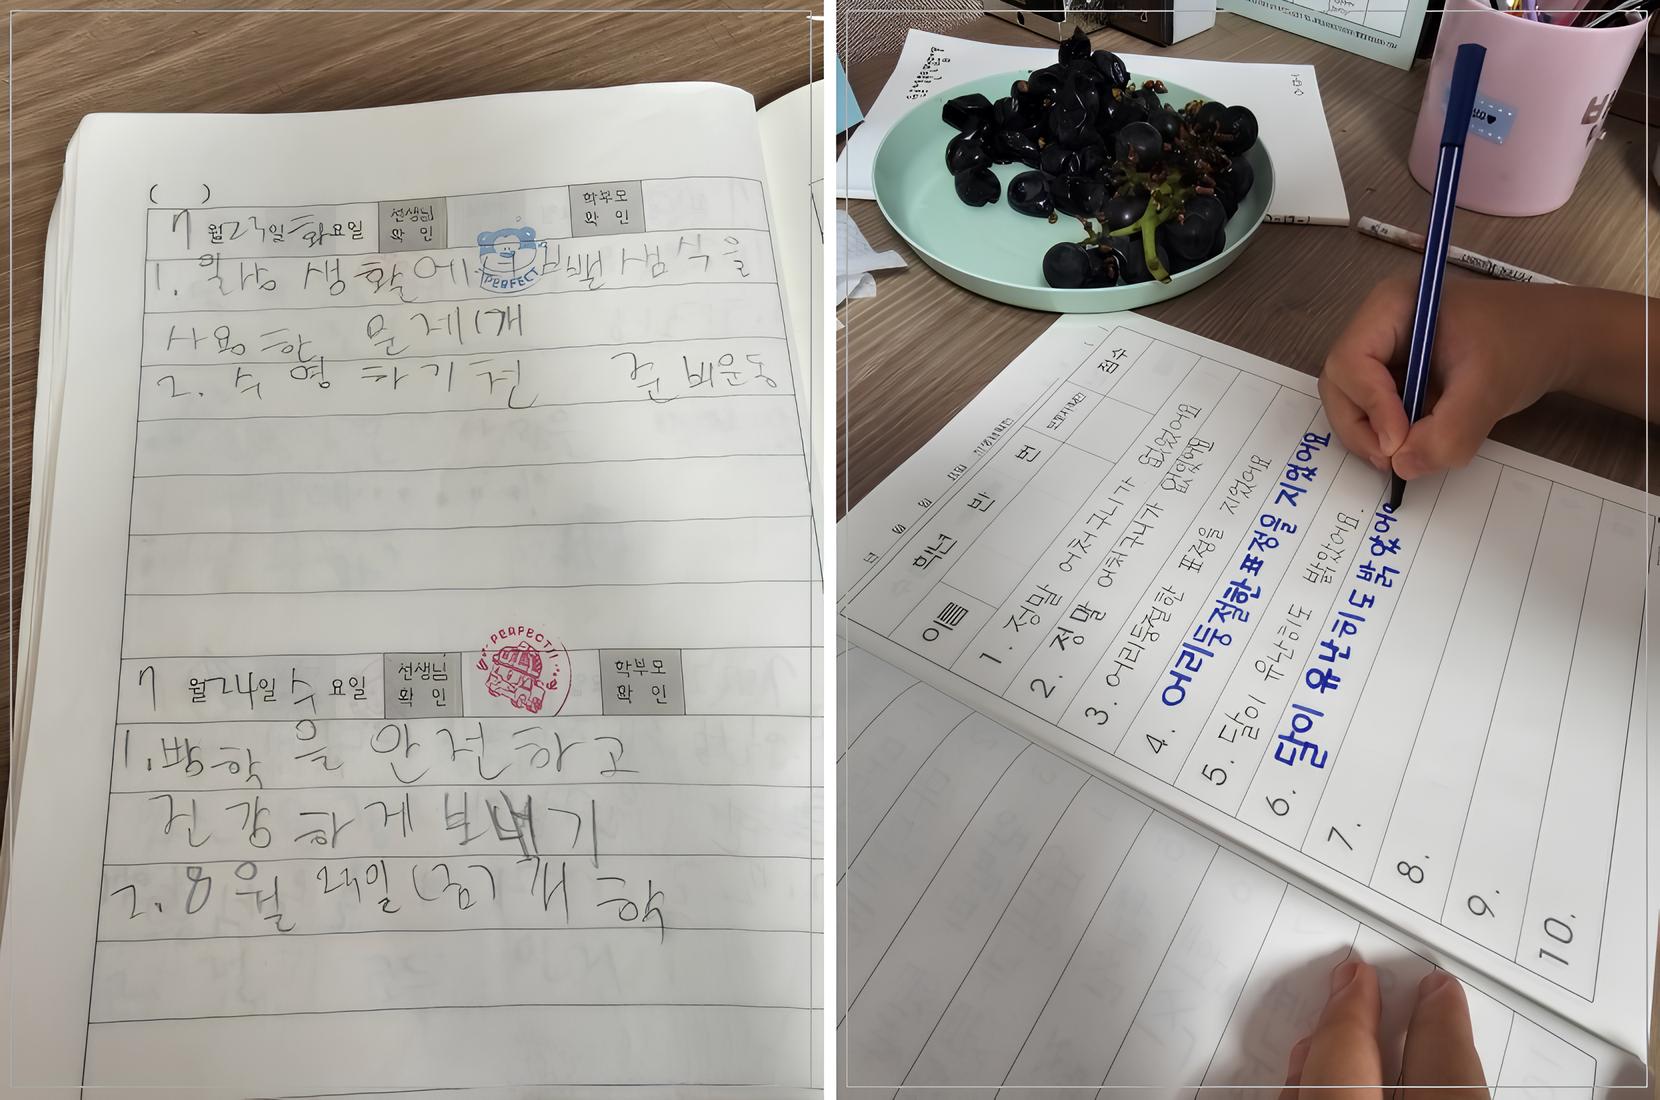 ( )
7 월 23일 화요일 선생님 확 인 학부모 확 인
PERFECT
1. 일상 생활에서 덧뺄셈식을
사용한 문제 1개
2. 수영 하기 전 준비운동
7 월 24일 수 요일 선생님 확 인 학부모 확 인
PERFECT!!
1. 방학을 안전하고
건강하게 보내기
2. 8월 23일(금) 개학
점수
학년 반 번
이름
1. 정말 어처구니가 없었어요
2. 정말 어처구니가 없었어요
3. 어리둥절한 표정을 지었어요
4. 어리둥절한 표정을 지었어요
5. 달이 유난히도 밝았어요.
6. 달이 유난히도 밝았어
7.
8.
9.
10.